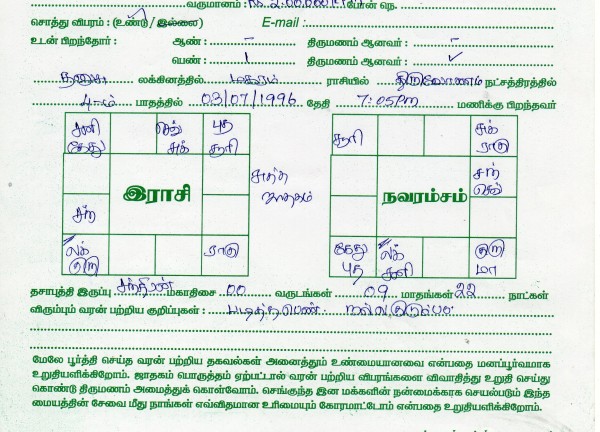 வருமானம் : கேசன் நெ.
சொத்து விபரம் : (உண்டு/இல்லை) E-mail :
உடன் பிறந்தோர் : ஆண் : – திருமணம் ஆனவர் : –
பெண் : 1 திருமணம் ஆனவர் : ✓
தனுசு லக்கினத்தில் மகரம் ராசியில் திருவோணம் நட்சத்திரத்தில்
4-ம் பாதத்தில் 03/07/1996 தேதி 7:05PM மணிக்கு பிறந்தவர்
சனி கேது செவ் சுக் புத சூரி
சூரி சுக் ராகு
இராசி சுத்த ஜாதகம் நவரம்சம் சந் செவ்
சந்
லக் குரு ராகு
கேது புத லக் சனி குரு மா
தசாபுத்தி இருப்பு சந்திரன் மகாதிசை 00 வருடங்கள் 09 மாதங்கள் 22 நாட்கள்
விரும்பும் வரன் பற்றிய குறிப்புகள் : படித்தபெண். நல்லகுடும்பம்
மேலே பூர்த்தி செய்த வரன் பற்றிய தகவல்கள் அனைத்தும் உண்மையானவை என்பதை மனப்பூர்வமாக
உறுதியளிக்கிறோம். ஜாதகம் பொருத்தம் ஏற்பட்டால் வரன் பற்றிய விபரங்களை விவாதித்து உறுதி செய்து
கொண்டு திருமணம் அமைத்துக் கொள்வோம். செங்குந்த இன மக்களின் நன்மைக்காக செயல்படும் இந்த
மையத்தின் சேவை மீது நாங்கள் எவ்விதமான உரிமையும் கோரமாட்டோம் என்பதை உறுதியளிக்கிறோம்.